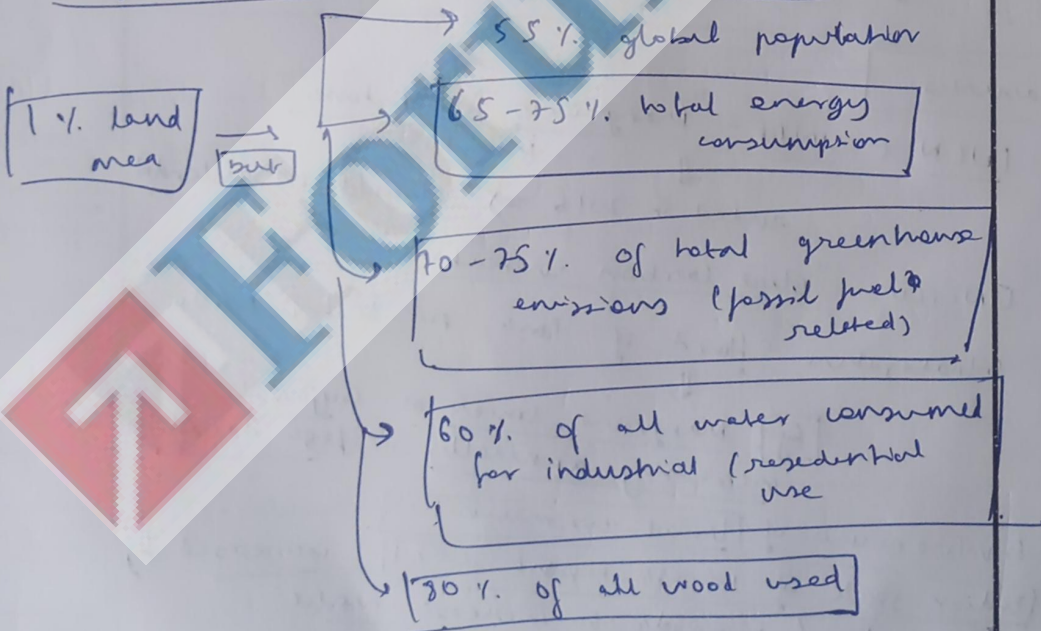 55% global population
1% land
area
but
65-75% total energy
consumption
70-75% of total greenhouse
emissions (fossil fuel
related)
60% of all water consumed
for industrial (resedential
use
80% of all wood used
Foru